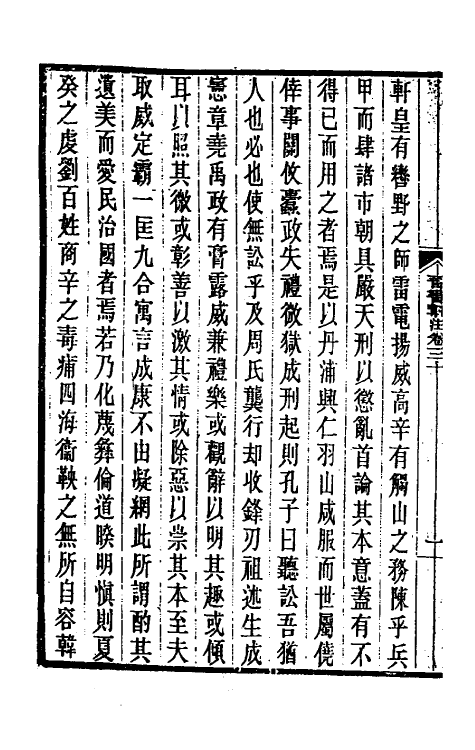 晉書斠注卷三十
一
軒皇有轡野之師雷電揚威高辛有觸山之務陳乎兵
甲而肆諸市朝具嚴天刑以懲亂首論其本意蓋有不
得已而用之者焉是以丹浦興仁羽山咸服而世屬僥
倖事關攸蠹政失禮微獄成刑起則孔子曰聽訟吾猶
人也必也使無訟乎及周氏龔行却收鋒刃祖述生成
憲章堯禹政有膏露威兼禮樂或觀辭以明其趣或傾
耳以照其微或彰善以激其情或除惡以崇其本至夫
取威定霸一匡九合寓言成康不由凝網此所謂酌其
遺美而愛民治國者焉若乃化蔑彝倫道睽明慎則夏
癸之虔劉百姓商辛之毒痡四海衞鞅之無所自容韓